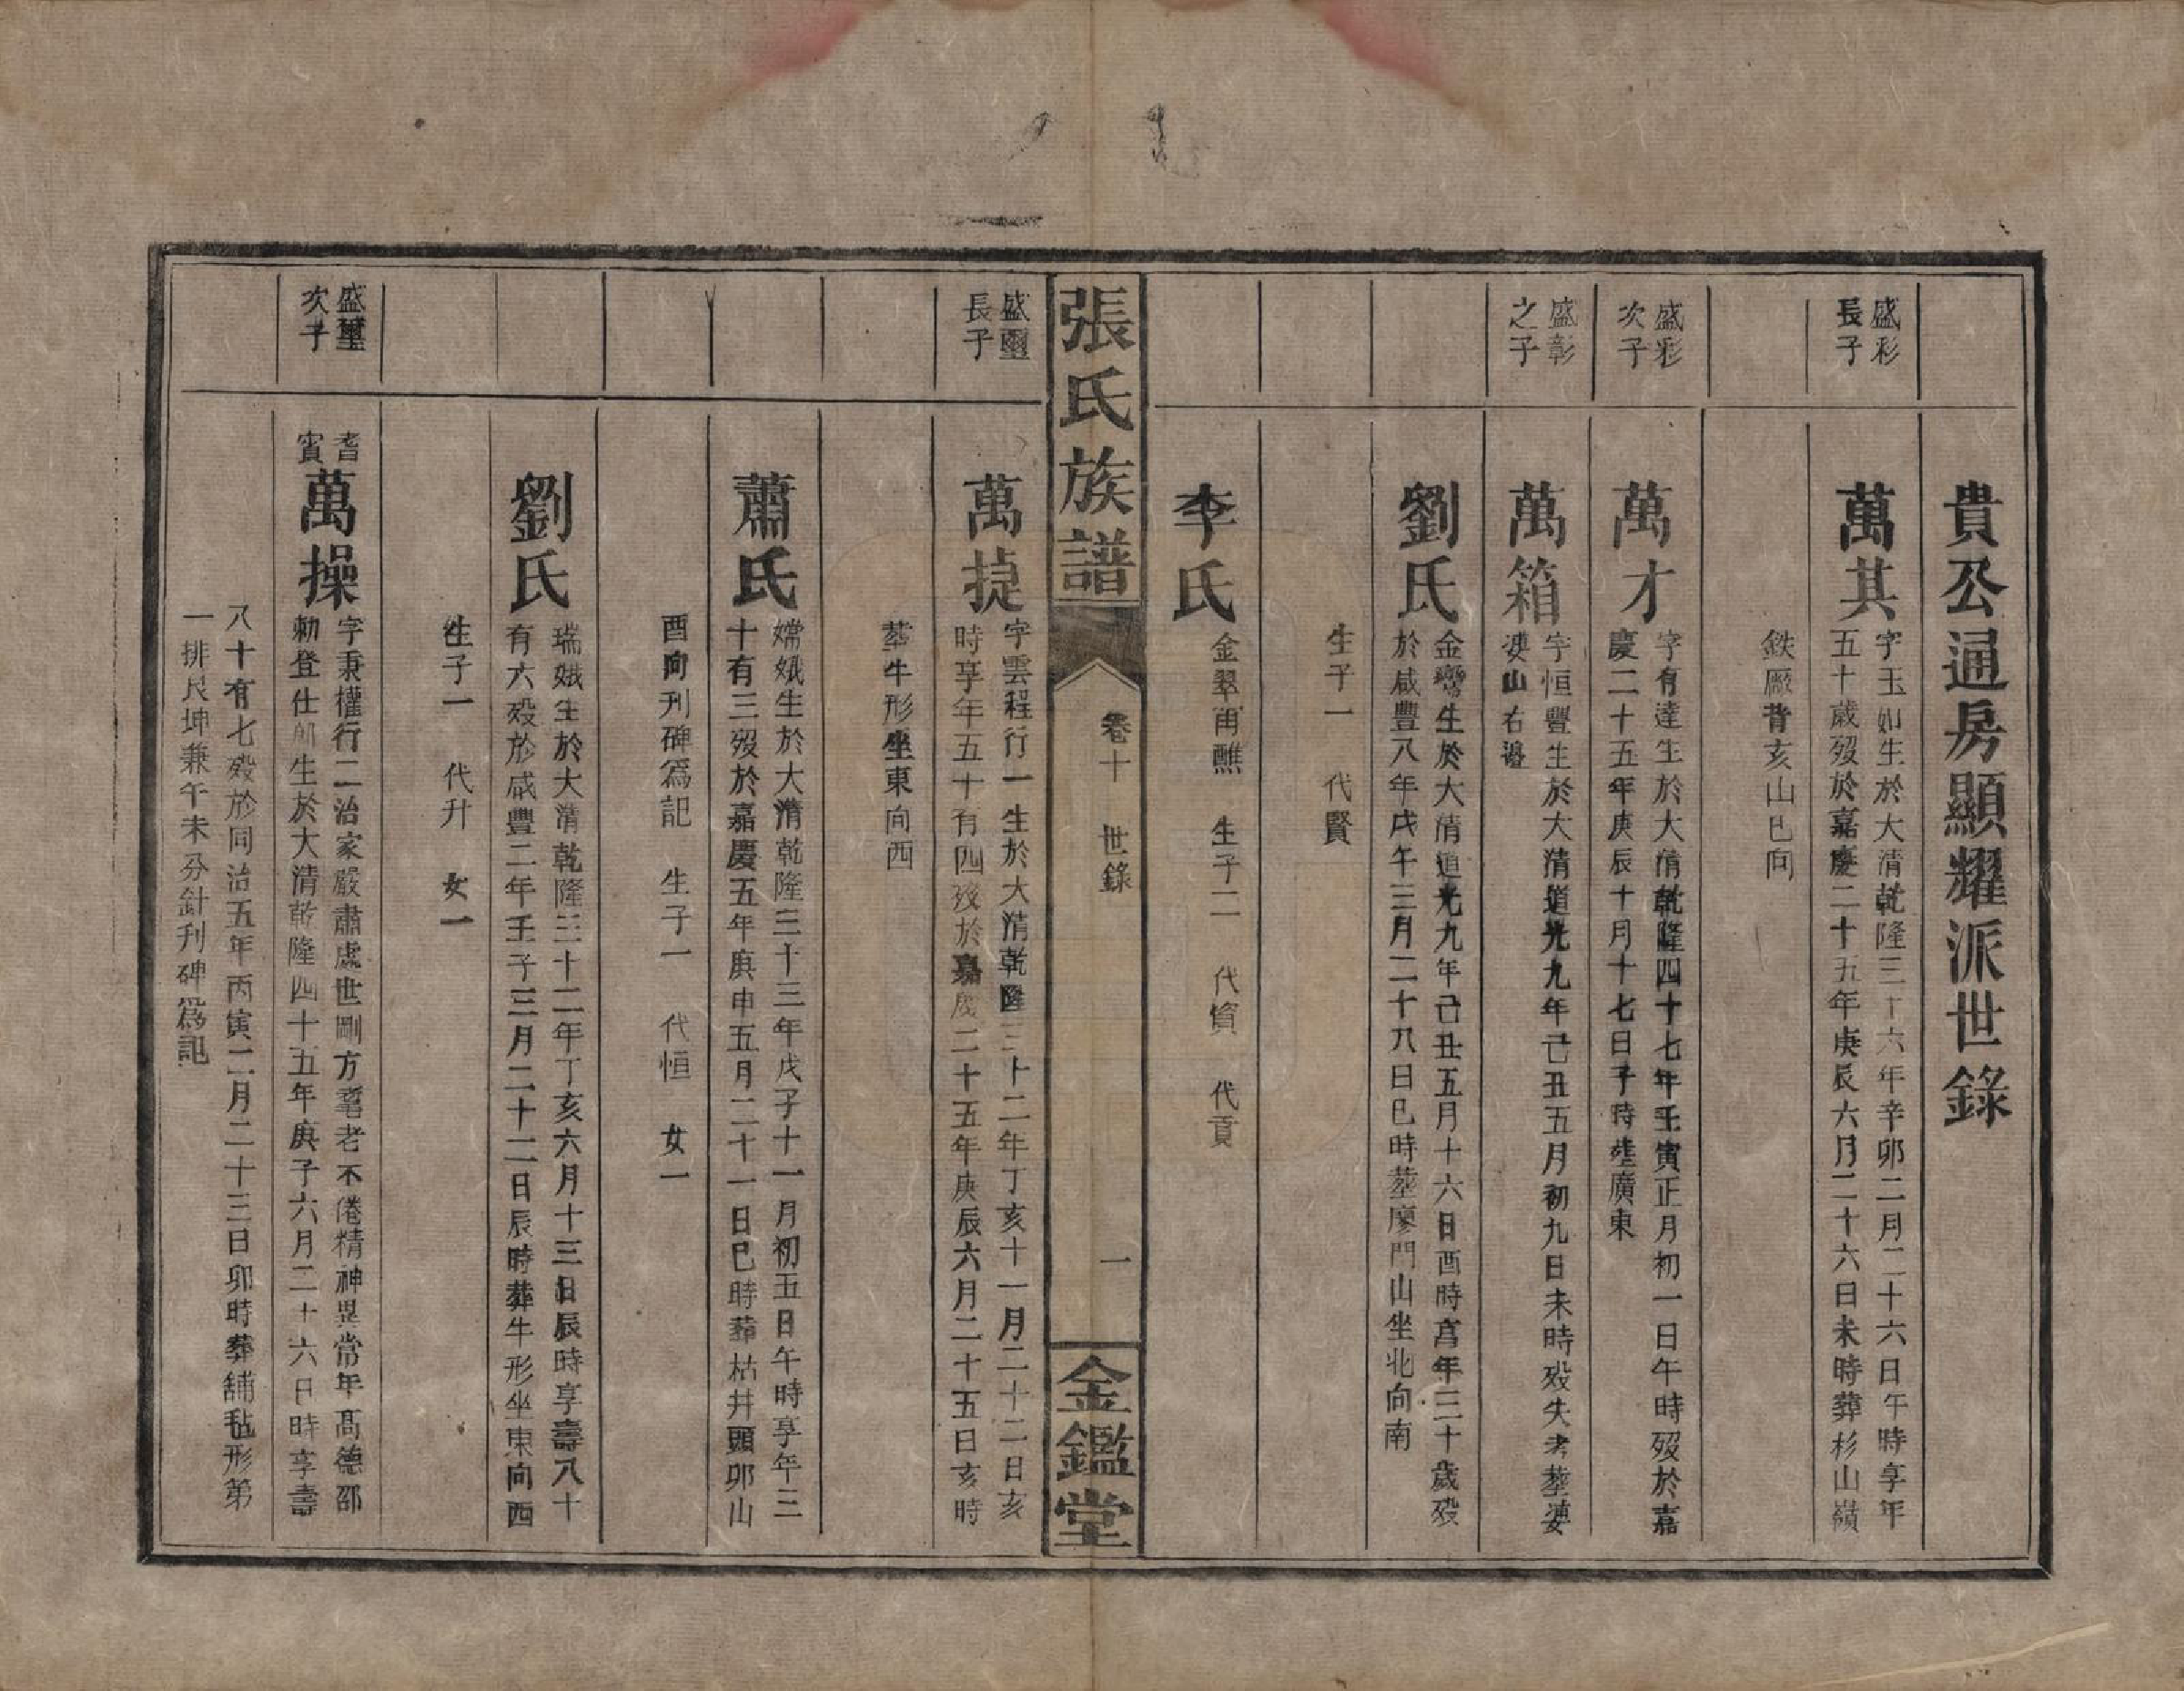 貴公通房顯耀派世錄
盛彩
長子
萬其
字玉如生於大清乾隆三十六年辛卯二月二十六日午時享年
五十歲歿於嘉慶二十五年庚辰六月二十六日未時葬杉山嶺
鉄厰背亥山巳向
盛彩
次子
萬才
字有達生於大清乾隆四十七年壬寅正月初一日午時歿於嘉
慶二十五年庚辰十月十七日子時塟廣東
盛彰
之子
萬箱
字恒豐生於大清道光九年己丑五月初九日未時殁失考塟婆
婆山右邊
劉氏
金鸞生於大清道光九年己丑五月十六日酉時享年三十歲殁
於咸豐八年戊午三月二十八日巳時塟廖門山坐北向南
生子一 代賢
李氏
金翠再醮 生子二 代賓 代貢
張氏族譜
卷十 世錄
一
金鑑堂
盛璽
長子
萬捷
字雲程行一生於大清乾隆三十二年丁亥十一月二十二日亥
時享年五十有四歿於嘉慶二十五年庚辰六月二十五日亥時
塟牛形坐東向西
蕭氏
嫦娥生於大清乾隆三十三年戊子十一月初五日午時享年三
十有三歿於嘉慶五年庚申五月二十一日巳時葬枯井頭卯山
酉向刋碑爲記 生子一 代恒 女一
劉氏
瑞娥生於大清乾隆三十二年丁亥六月十三日辰時享壽八十
有六殁於咸豐二年壬子三月二十二日辰時葬牛形坐東向西
生子一 代升 女一
盛璽
次子
耆
賓
萬操
字秉權行二治家嚴肅處世剛方耄老不倦精神異常年高德邵
勅登仕郎生於大清乾隆四十五年庚子六月二十六日時享壽
八十有七殁於同治五年丙寅二月二十三日卯時葬鋪毡形第
一排艮坤兼午未分針刋碑爲記